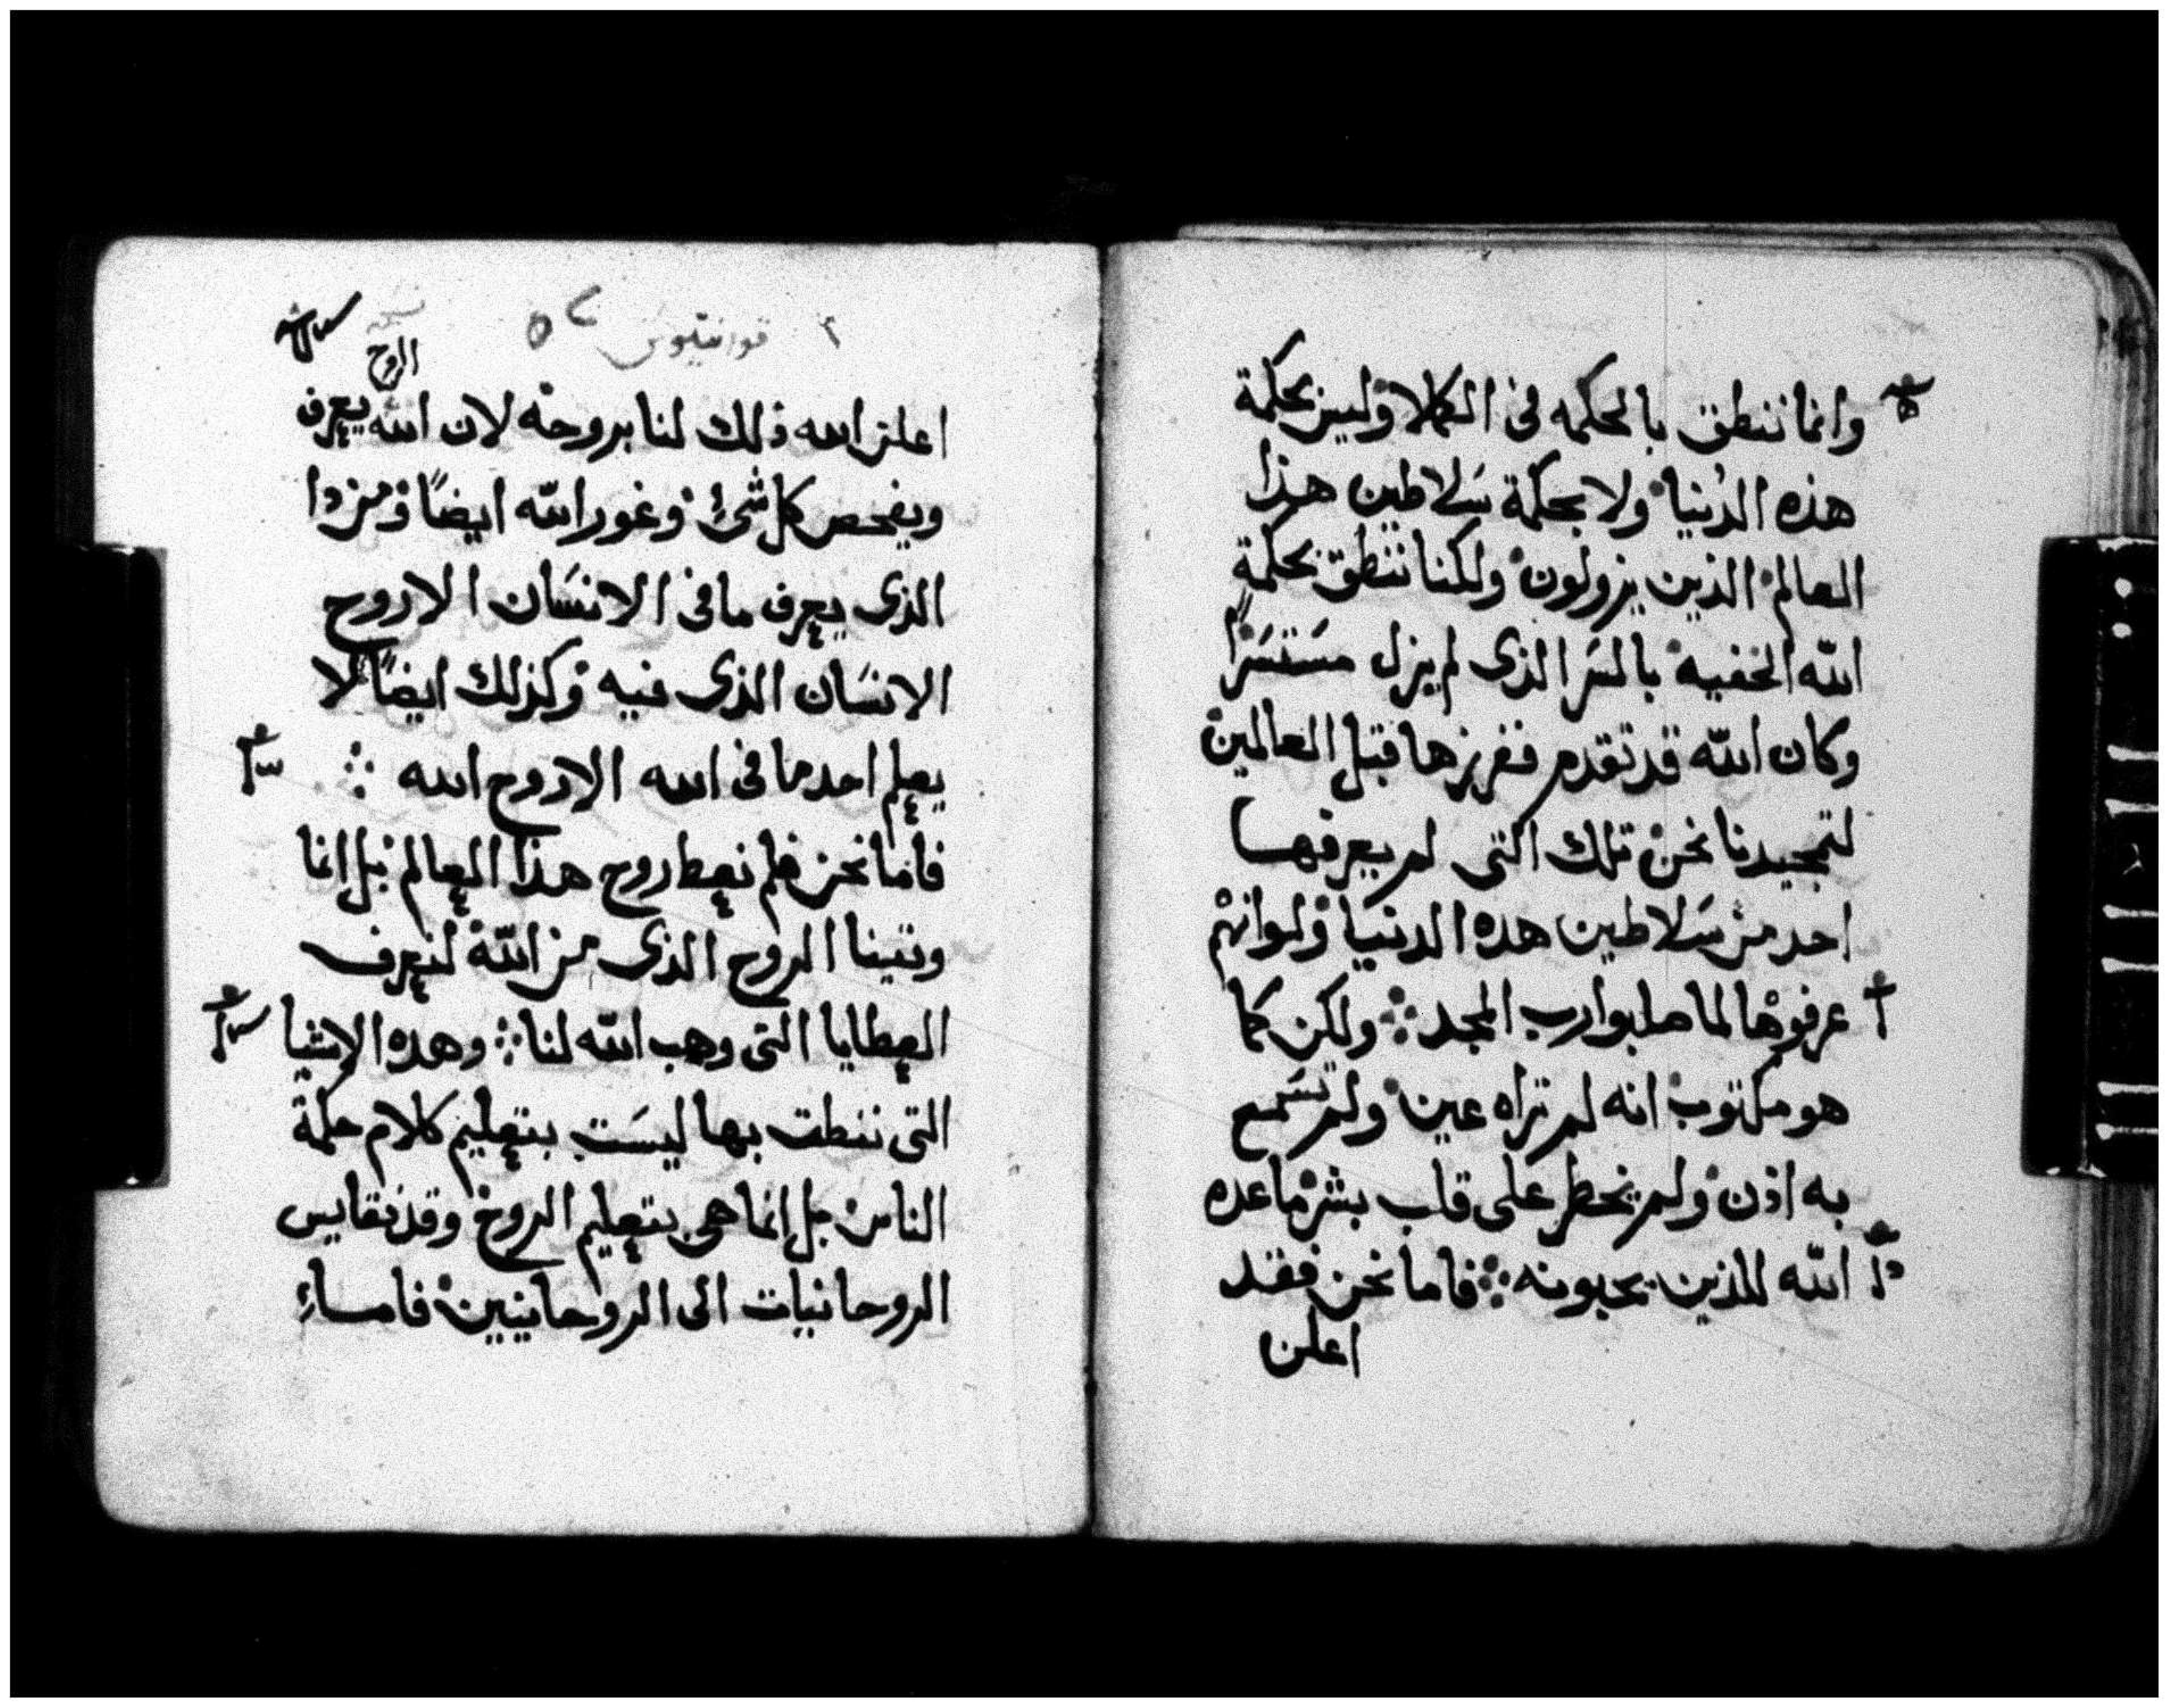 وانما ننطق بالحكمه فى الكملا وليس بحكمة
هذه الدنيا ولا بحكمة سَلاطين هذا
العالم الذين يزولون ولكنا ننطق بحكمة
اللّه الخفيه بالسَر الذى لم يزل مسَتسَرًا
وكان اللّه قد تقدم ففرزها قبل العالمين
لتمجيدنا نحن تلك التى لم يعرفها
احد من سَلاطين هده الدنيا ولو انهم
عرفوها لما صلبوا رب المجد ولكن كما
هو مكتوب انه لم تراه عين ولم تسَمع
به اذن ولم يخطر على قلب بشر ما عده
اللّه للذين يحبونه فاما نحن فقد
اعلن
قورنتيوس
الروح
اعلن الله ذلك لنا بروحه لان اللّه يعرف
ويفحص كل شئ وغور اللّه ايضًا ومن دا
الذى يعرف ما فى الانسَان الا روح
الانسَان الذى فيه وكذلك ايضًا لا
يعلم احد ما فى الله الا روح الله
فاما نحن فلم نعط روح هذا العالم بل انما
وتينا الروح الذى من اللّه لنعرف
العطايا التى وهب اللّه لنا وهده الاشيا
التى ننطق بها ليسَت بتعليم كلام حكمة
الناس بل انما هى بتعليم الروح وقد نقايس
الروحانيات الى الروحانيين فامساءِ